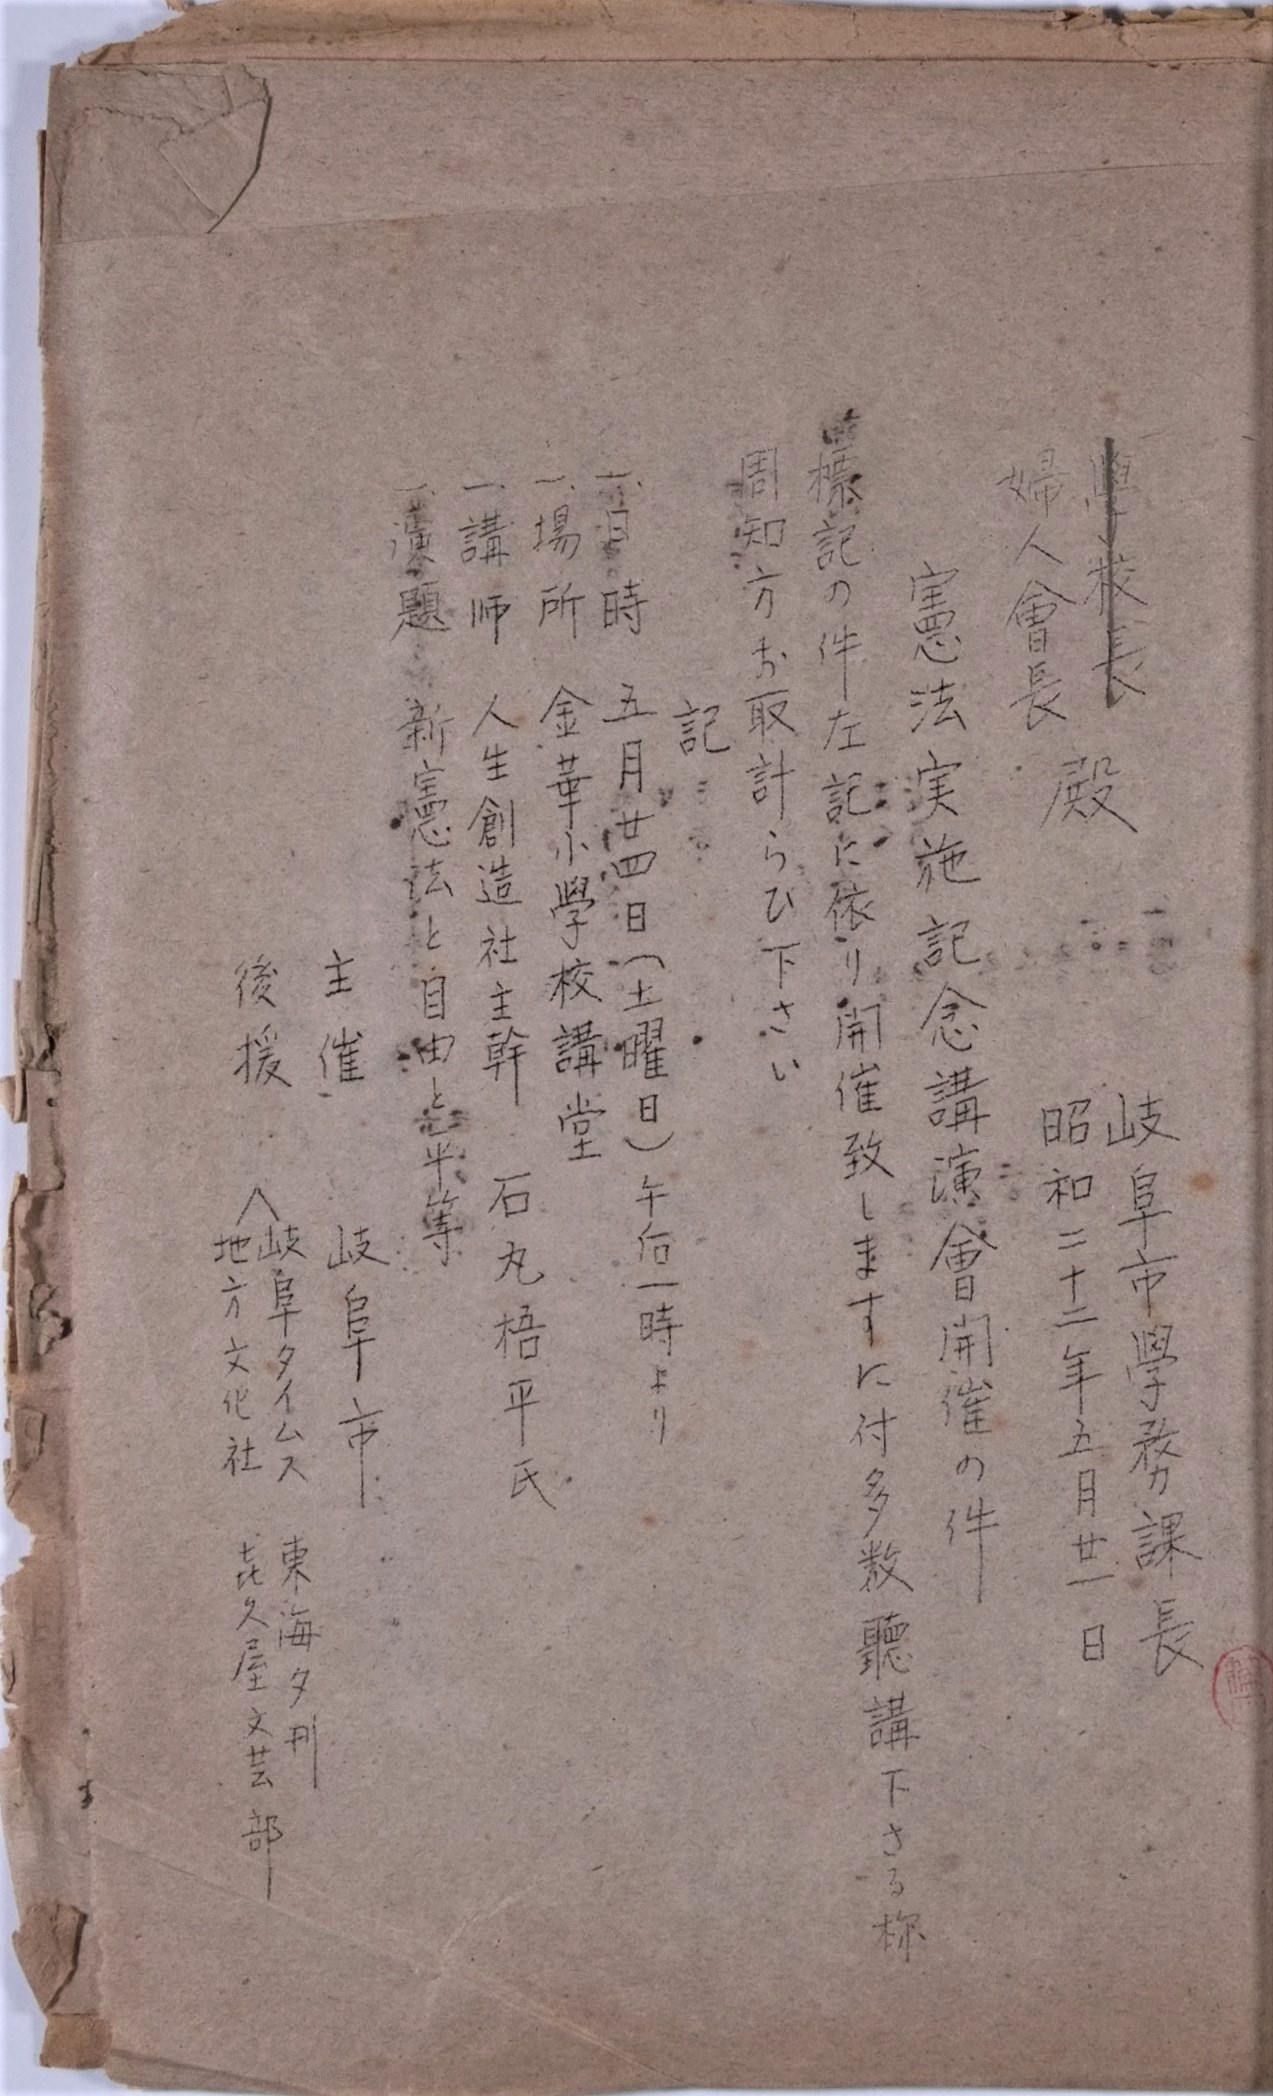 岐阜市學務課長
昭和二十二年五月廿一日
學校長
婦人會長
殿
憲法実施記念講演會開催の件
標記の件左記に依り開催致しますに付多数聽講下さる様
周知方お取計らひ下さい
記
一、日時 五月廿四日(土曜日)午后一時より
一、場所 金華小學校講堂
一、講师 人生創造社主幹 石丸梧平氏
一、演題 新憲法と自由と平等
主催 岐阜市
後援
岐阜タイムス 東海夕刊
地方文化社 㐂久屋文芸部